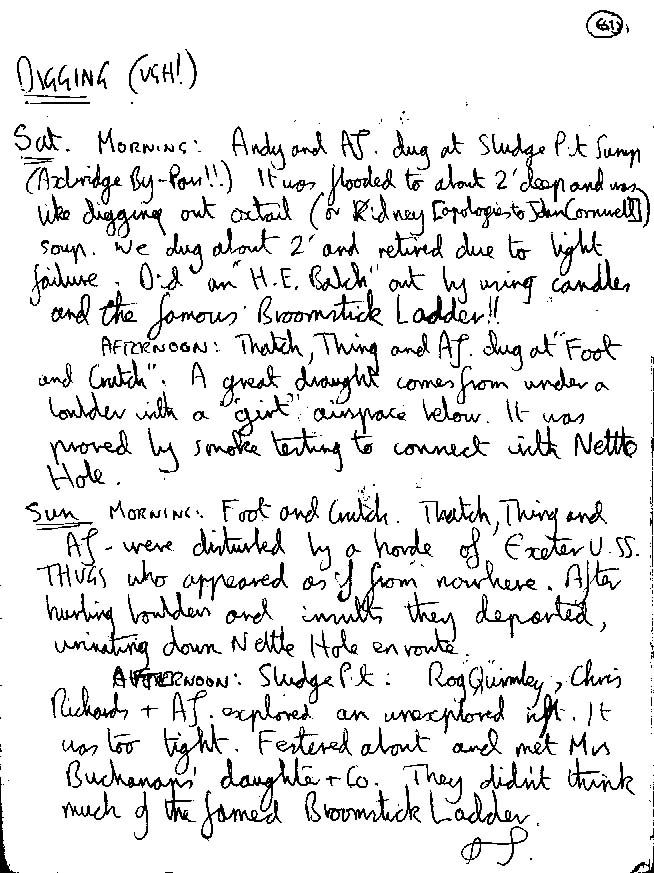 61
DIGGING (UGH!)
Sat. MORNING: Andy and AJ. dug at Sludge Pit Sump
(Axbridge By-Pass!!) It was flooded to about 2' deep and was
like digging out oxtail (or Kidney [apologies to John Cornwell])
soup. We dug about 2' and retired due to light
failure. Did an "H.E. Balch" out by using candles
and the famous Broomstick Ladder!!
AFTERNOON: Thatch, Thing and AJ. dug at "Foot
and Crutch". A great draught comes from under a
boulder with a "girt" airspace below. It was
proved by smoke testing to connect with Nettle
Hole.
Sun MORNING: Foot and Crutch. Thatch, Thing and
AJ - were disturbed by a horde of Exeter U.SS.
THUGS who appeared as if from nowhere. After
hurling boulders and insults they departed,
urinating down Nettle Hole en route.
AFTERNOON: Sludge Pit: Rog Quimley, Chris
Richards + AJ. explored an unexplored rift. It
was too tight. Festered about and met Mrs
Buchanan's daughter + Co. They didn't think
much of the famed Broomstick Ladder.
AJ.